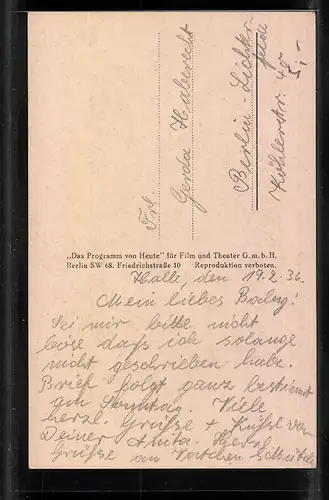 Frl.
Gerda Haberecht
Berlin-Lichter
felde
Köhlerstr. 45
5,-
„Das Programm von Heute" für Film und Theater G. m. b. H.
Berlin SW 68. Friedrichstraße 10 Reproduktion verboten.
Halle, den 19.2.36.
Mein liebes Baby!
Sei mir bitte nicht
böse daß ich solange
nicht geschrieben habe.
Brief folgt ganz bestimmt
am Sonntag. Viele
herzl. Grüße + Küße von
Deiner Anita. Herzl.
Grüße an